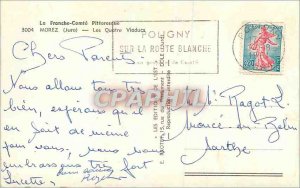 La Franche-Comté Pittoresque
3004 MOREZ (Jura) — Les Quatre Viaducs
POLIGNY
SUR LA ROUTE BLANCHE
Chers Parents
Nous allons tous très
bien, espérons qu'il
en soit de même
pour vous, nous vous
embrassons très fort
Lucette
M. Ragot L.
Moncé en Belin
Sarthe